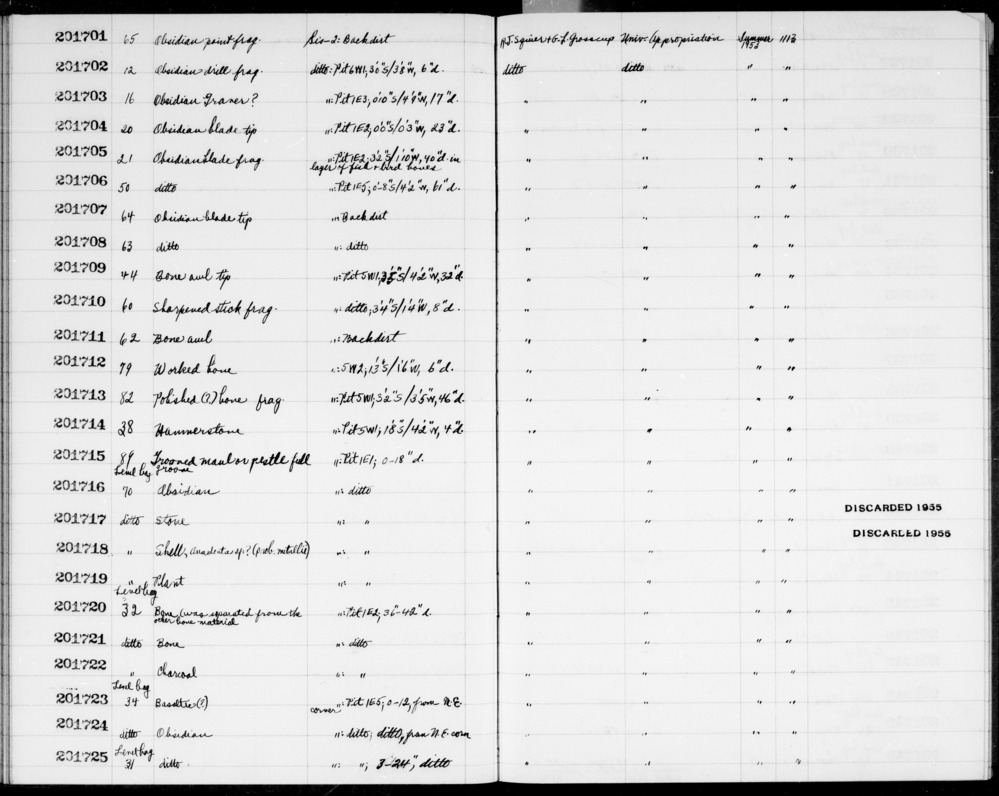 201701 65 Obsidian point frag. Sis-2: Backdirt R.J. Squier & G.L. Grosscup Univ. Appropriation Summer 1953 1113
201702 12 Obsidian drill frag. ditto: Pit 6W1, 3'0"S/3'8"W, 6"d. ditto ditto " "
201703 16 Obsidian Graver? ": Pit 1E3, 0'10"S/4'9"W, 17"d. " " " "
201704 20 Obsidian blade tip ": Pit 1E2, 0'0"S/0'3"W, 23"d. " " " "
201705 21 Obsidian blade frag. ": Pit 1E2, 3'2"S/1'10"W, 40"d. in
layer of fish & bird bones " " " "
201706 50 ditto ": Pit 1E5, 0'-8"S/4'2"W, 61"d. " " " "
201707 64 Obsidian blade tip ": Backdirt " " " "
201708 63 ditto ": ditto " " " "
201709 44 Bone awl tip ": Pit 5W1, 3'5"S/4'2"W, 32"d " " " "
201710 60 Sharpened stick frag. ": ditto, 3'4"S/1'4"W, 8"d. " " " "
201711 62 Bone awl ": Backdirt " " " "
201712 79 Worked bone ": 5W2, S/1'6"W, 6"d. " " " "
201713 82 Polished (?) bone frag. ": Pit 5W1, 3'2"S/3'5"W, 46"d. " " " "
201714 38 Hammerstone ": Pit 5W1, 1'8"S/4'2"W, 4"d " " " "
201715 89 Grooved maul or pestle full
groove ": Pit 1E1; 0-18"d. " " " "
Level bag
201716 70 Obsidian ": ditto " " " "
201717 ditto Stone ": " " " " " DISCARDED 1955
DISCARDED 1955
201718 " Shell, Anadonta sp.? (prob. ) ": " " " " "
201719 " Plant ": " " " " "
Level bag
201720 32 Bone (was separated from the
other bone material ": Pit 1E2; 36-42"d. " " " "
201721 ditto Bone ": ditto " " " "
201722 " Charcoal ": " " " " "
Level bag
201723 34 (?) ": Pit 1E5; 0-12, from N.E.
corner " " " "
201724 ditto Obsidian ": ditto; ditto, from N.E. corn " " " "
Level bag
201725 31 ditto ": "; 3-24", ditto " " " "